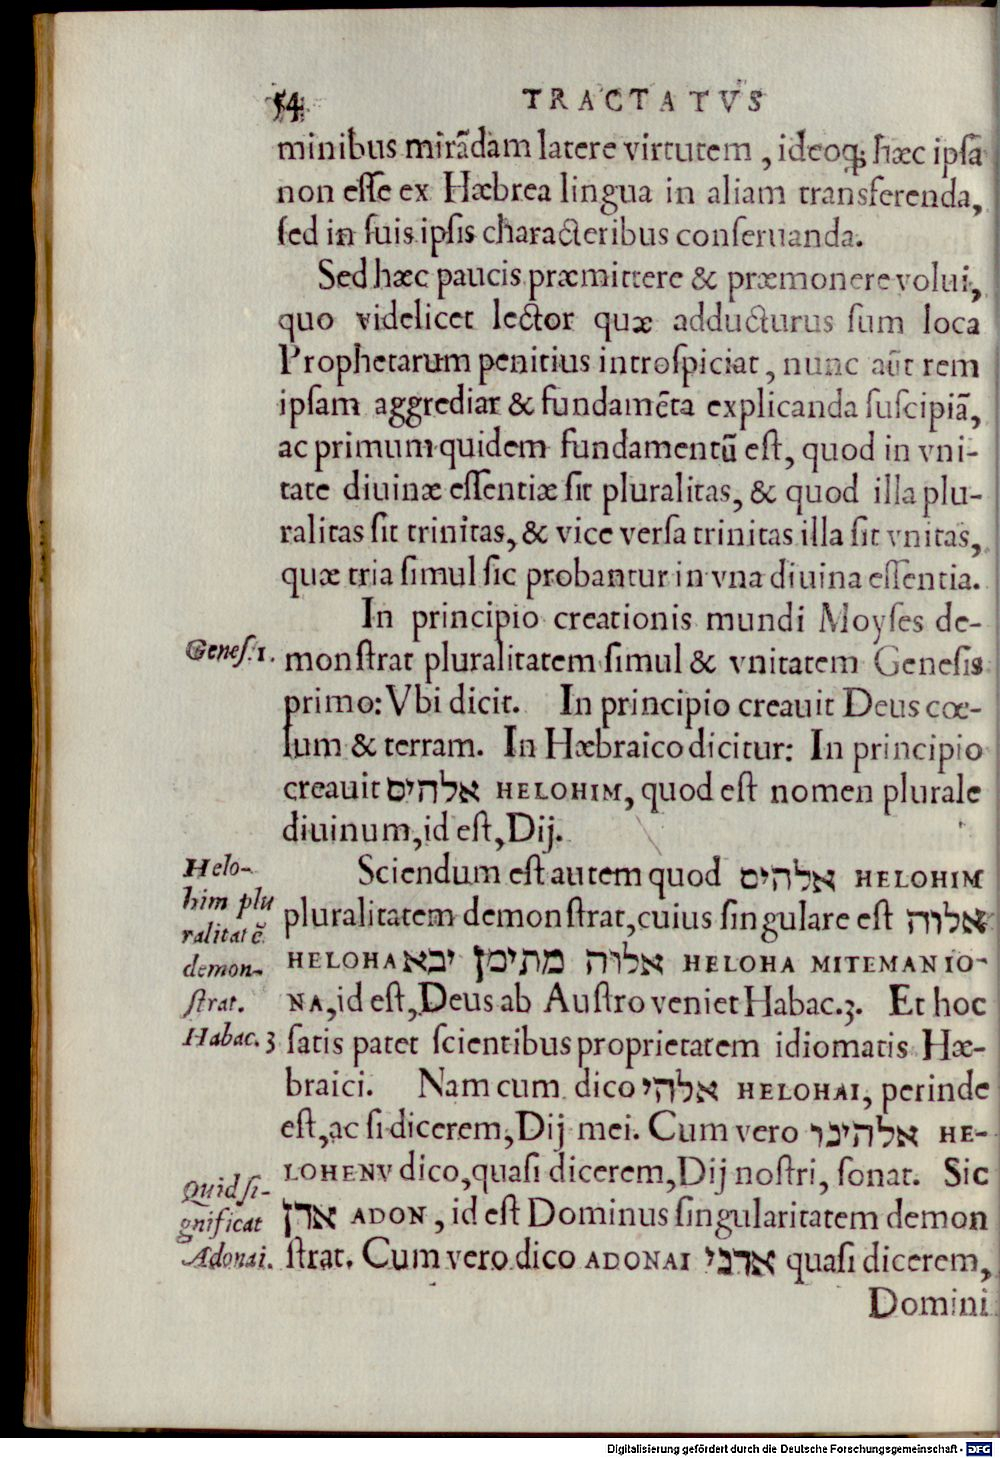 54 TRACTATVS
minibus mirãdam latere virtutem, ideoq; hæc ipsã
non esse ex Hæbrea lingua in aliam transferenda,
sed in suis ipsis characteribus conseruanda.
Sed hæc paucis præmittere & præmonere volui,
quo videlicet lector quæ adducturus sum loca
Prophetarum penitius introspiciat, nunc aũt rem
ipsam aggrediar & fundamẽta explicanda suscipiã,
ac primum quidem fundamentũ est, quod in vni-
tate diuinæ essentiæ sit pluralitas, & quod illa plu-
ralitas sit trinitas, & vice versa trinitas illa sit vnitas,
quæ tria simul sic probantur in vna diuina essentia.
In principio creationis mundi Moyses de-
Genes. 1.
monstrat pluralitatem simul & vnitatem Genesis
primo: Vbi dicit. In principio creauit Deus cœ-
lum & terram. In Hæbraico dicitur: In principio
creauit אלהים HELOHIM, quod est nomen plurale
diuinum, id est, Dij.
Helo-
him plu
ralitatẽ
demon-
strat.
Habac. 3
Sciendum est autem quod אלהים HELOHIM
pluralitatem demonstrat, cuius singulare est אלוה
HELOHA אלוה מתימן יבא HELOHA MITEMAN IO-
NA, id est, Deus ab Austro veniet Habac. 3. Et hoc
satis patet scientibus proprietatem idiomatis Hæ-
braici. Nam cum dico אלהי HELOHAI, perinde
est, ac si dicerem, Dij mei. Cum vero אלהינו HE-
LOHENV dico, quasi dicerem, Dij nostri, sonat. Sic
Quid si-
gnificat
Adonai.
אדן ADON, id est Dominus singularitatem demon
strat. Cum vero dico ADONAI אדני quasi dicerem,
Domini
Digitalisierung gefördert durch die Deutsche Forschungsgemeinschaft - DFG